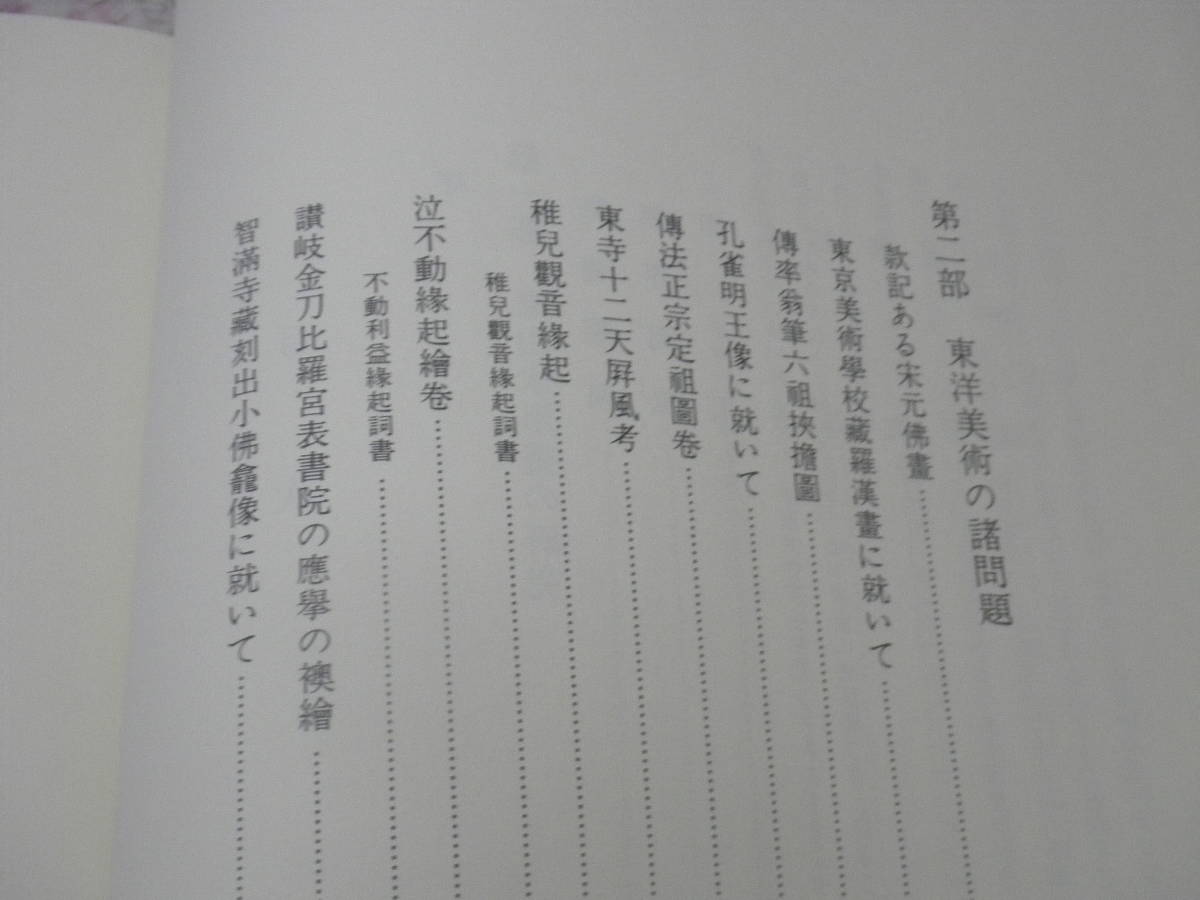 第二部　東洋美術の諸問題
款記ある宋元佛畫
東京美術學校藏羅漢畫に就いて
傳率翁筆六祖挾擔圖
孔雀明王像に就いて
傳法正宗定祖圖卷
東寺十二天屛風考
稚兒觀音緣起
稚兒觀音緣起詞書
泣不動緣起繪卷
不動利益緣起詞書
讃岐金刀比羅宮表書院の應擧の襖繪
智滿寺藏刻出小佛龕像に就いて